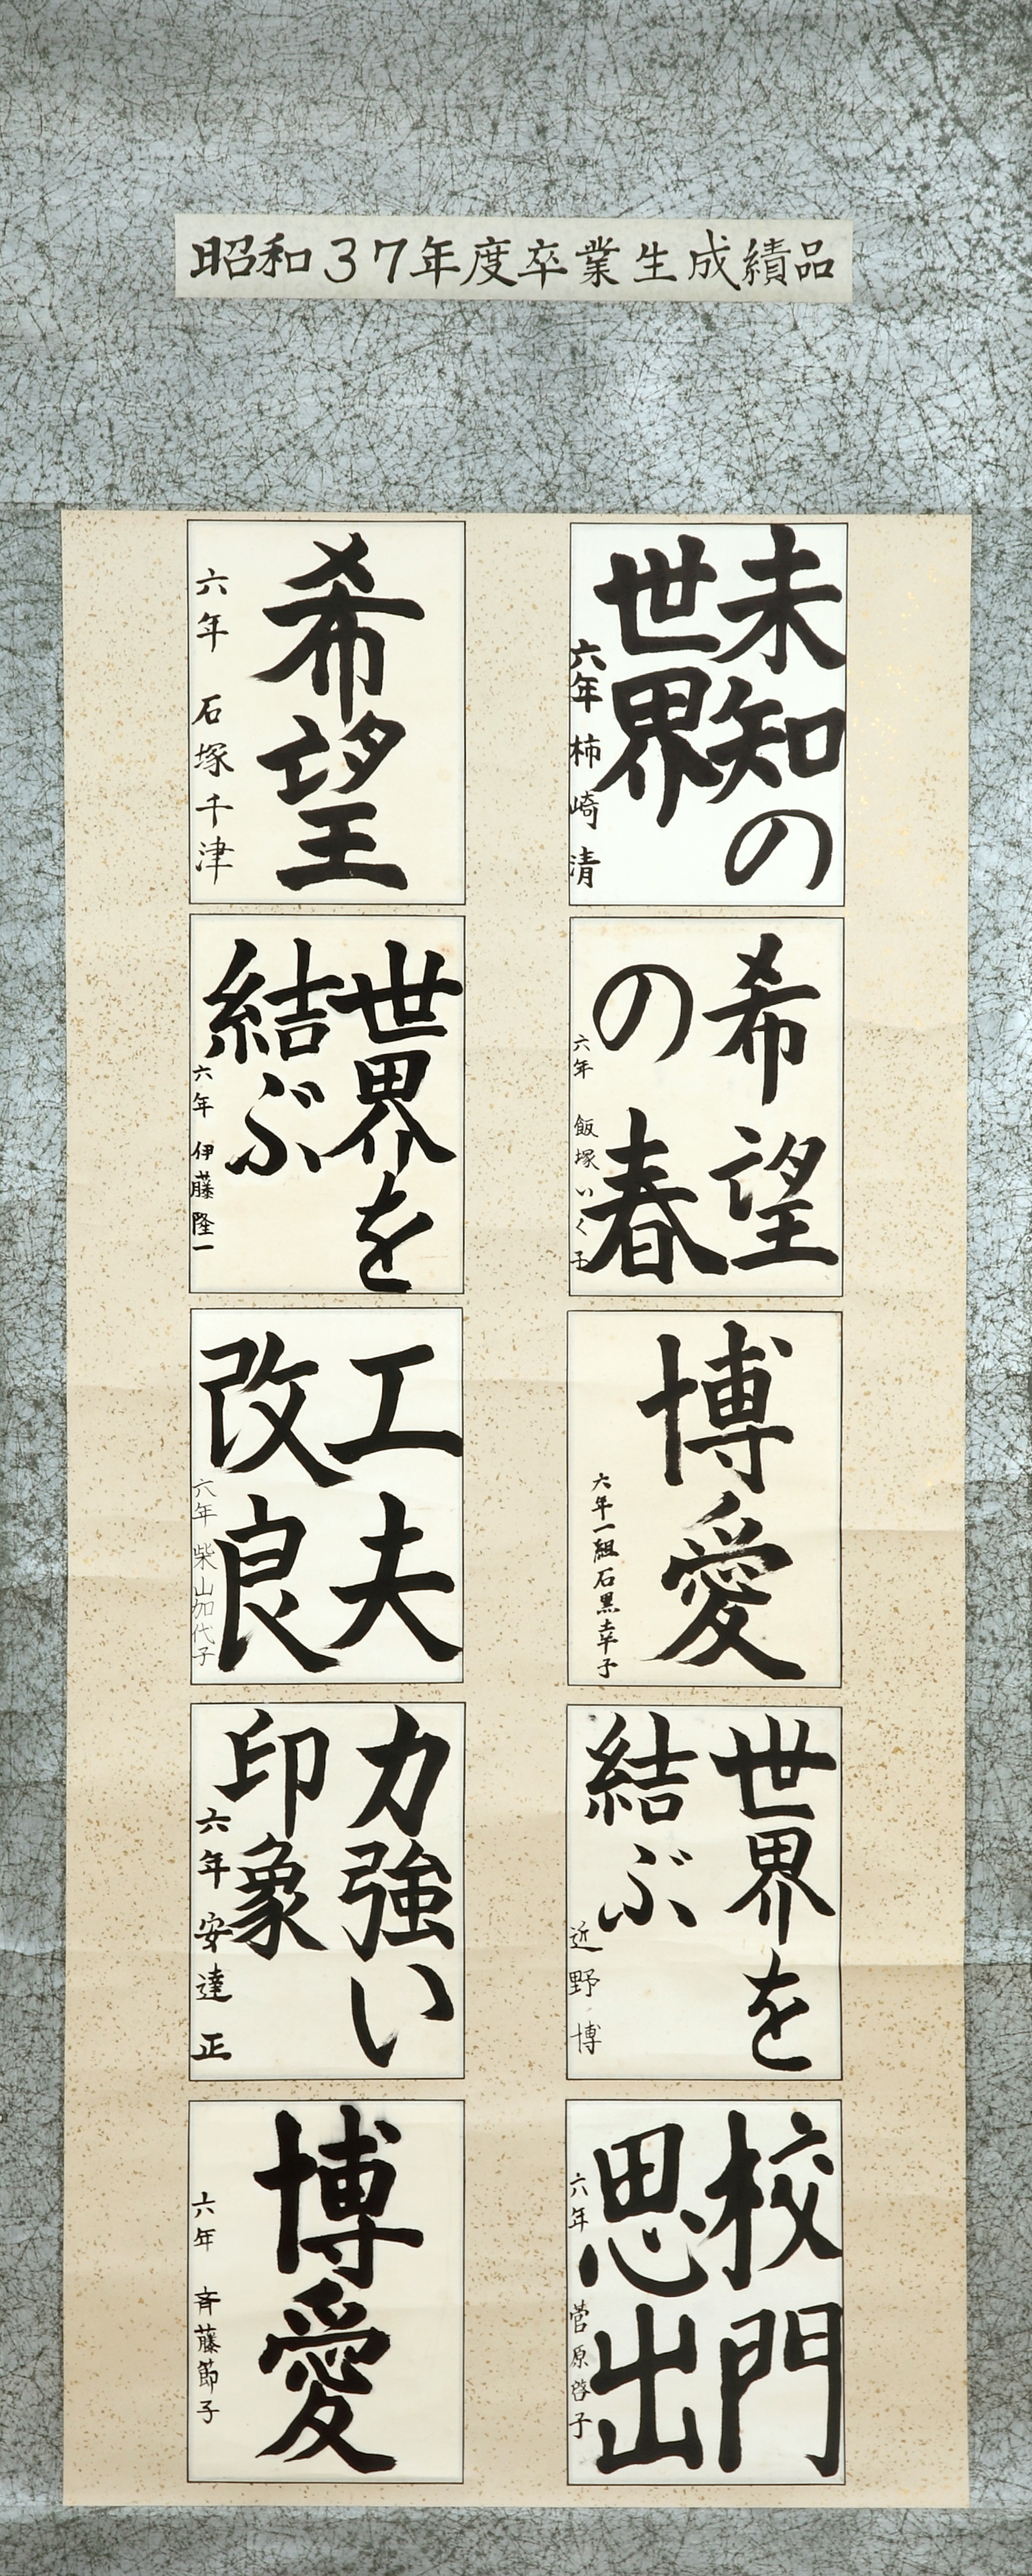 昭和37年度卒業生成績品
未知の
世界
六年 柿崎清
希望
の春
六年 飯塚いく子
博愛
六年一組石黒幸子
世界を
結ぶ
近野博
校門
思出
六年 菅原啓子
希望
六年 石塚千津
世界を
結ぶ
六年 伊藤隆一
工夫
改良
六年 柴山加代子
力強い
印象
六年 安達正
博愛
六年 斉藤節子